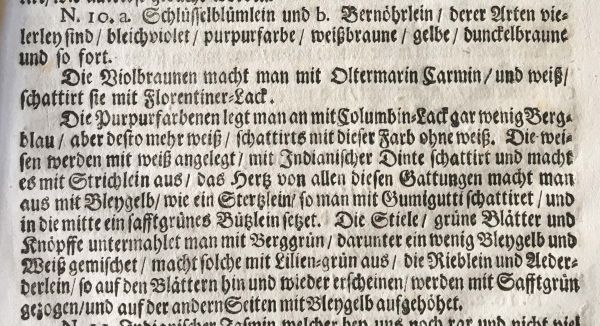 N. 10. a. Schlüsselblümlein und b. Bernöhrlein / derer Arten vie-
lerley sind / bleichviolet / purpurfarbe / weißbraune / gelbe / dunckelbraune
und so fort.
Die Violbraunen macht man mit Oltermarin Carmin / und weiß /
schattirt sie mit Florentiner-Lack.
Die Purpurfarbenen legt man an mit Columbin-Lack gar wenig Berg-
blau / aber desto mehr weiß / schattirts mit dieser Farb ohne weiß. Die wei-
sen werden mit weiß angelegt / mit Indianischer Dinte schattirt und macht
es mit Strichlein aus / das Hertz von allen diesen Gattungen macht man
aus mit Bleygelb / wie ein Stertzlein / so man mit Gumigutti schattiret / und
in die mitte ein safftgrünes Bützlein setzet. Die Stiele / grüne Blätter und
Knöpffe untermahlet man mit Berggrün / darunter ein wenig Bleygelb und
Weiß gemischet / macht solche mit Lilien-grün aus / die Rieblein und Aeder-
derlein / so auf den Blättern hin und wieder erscheinen / werden mit Safftgrün
gezogen / und auf der andern Seiten mit Bleygelb aufgehöhet.
Indianischer Jasmin welcher bey uns noch rar und nicht viel